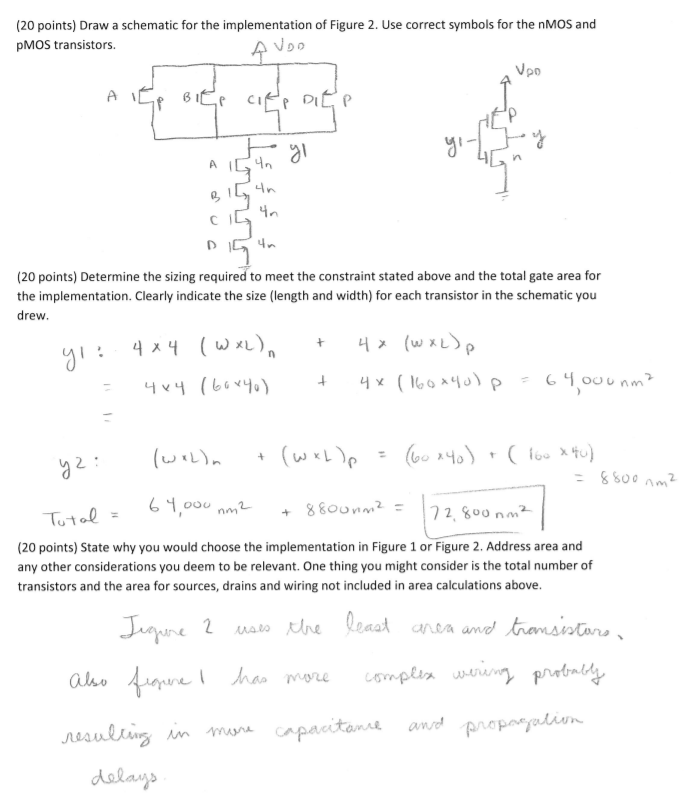 (20 points) Draw a schematic for the implementation of Figure 2. Use correct symbols for the nMOS and
pMOS transistors.
VDD
VDD
A P B P C P D P
P
y1 y
n
y1
A 4n
B 4n
C 4n
D 4n
(20 points) Determine the sizing required to meet the constraint stated above and the total gate area for
the implementation. Clearly indicate the size (length and width) for each transistor in the schematic you
drew.
y1: 4 x 4 (W x L)n + 4 x (W x L)p
= 4 x 4 (60 x 40) + 4 x (160 x 40) p = 64,000 nm²
=
y2: (W x L)n + (W x L)p = (60 x 40) + (160 x 40)
= 8800 nm²
Total = 64,000 nm² + 8800 nm² = 72,800 nm²
(20 points) State why you would choose the implementation in Figure 1 or Figure 2. Address area and
any other considerations you deem to be relevant. One thing you might consider is the total number of
transistors and the area for sources, drains and wiring not included in area calculations above.
Figure 2 uses the least area and transistors.
Also figure 1 has more complex wiring probably
resulting in more capacitance and propagation
delays.